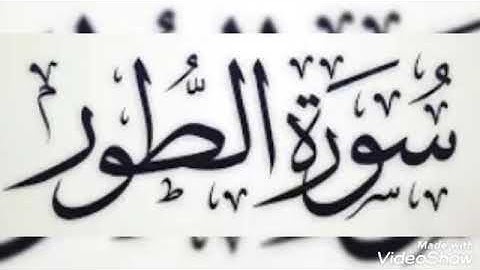 سُورَة الطُّور
Made with
VideoShow